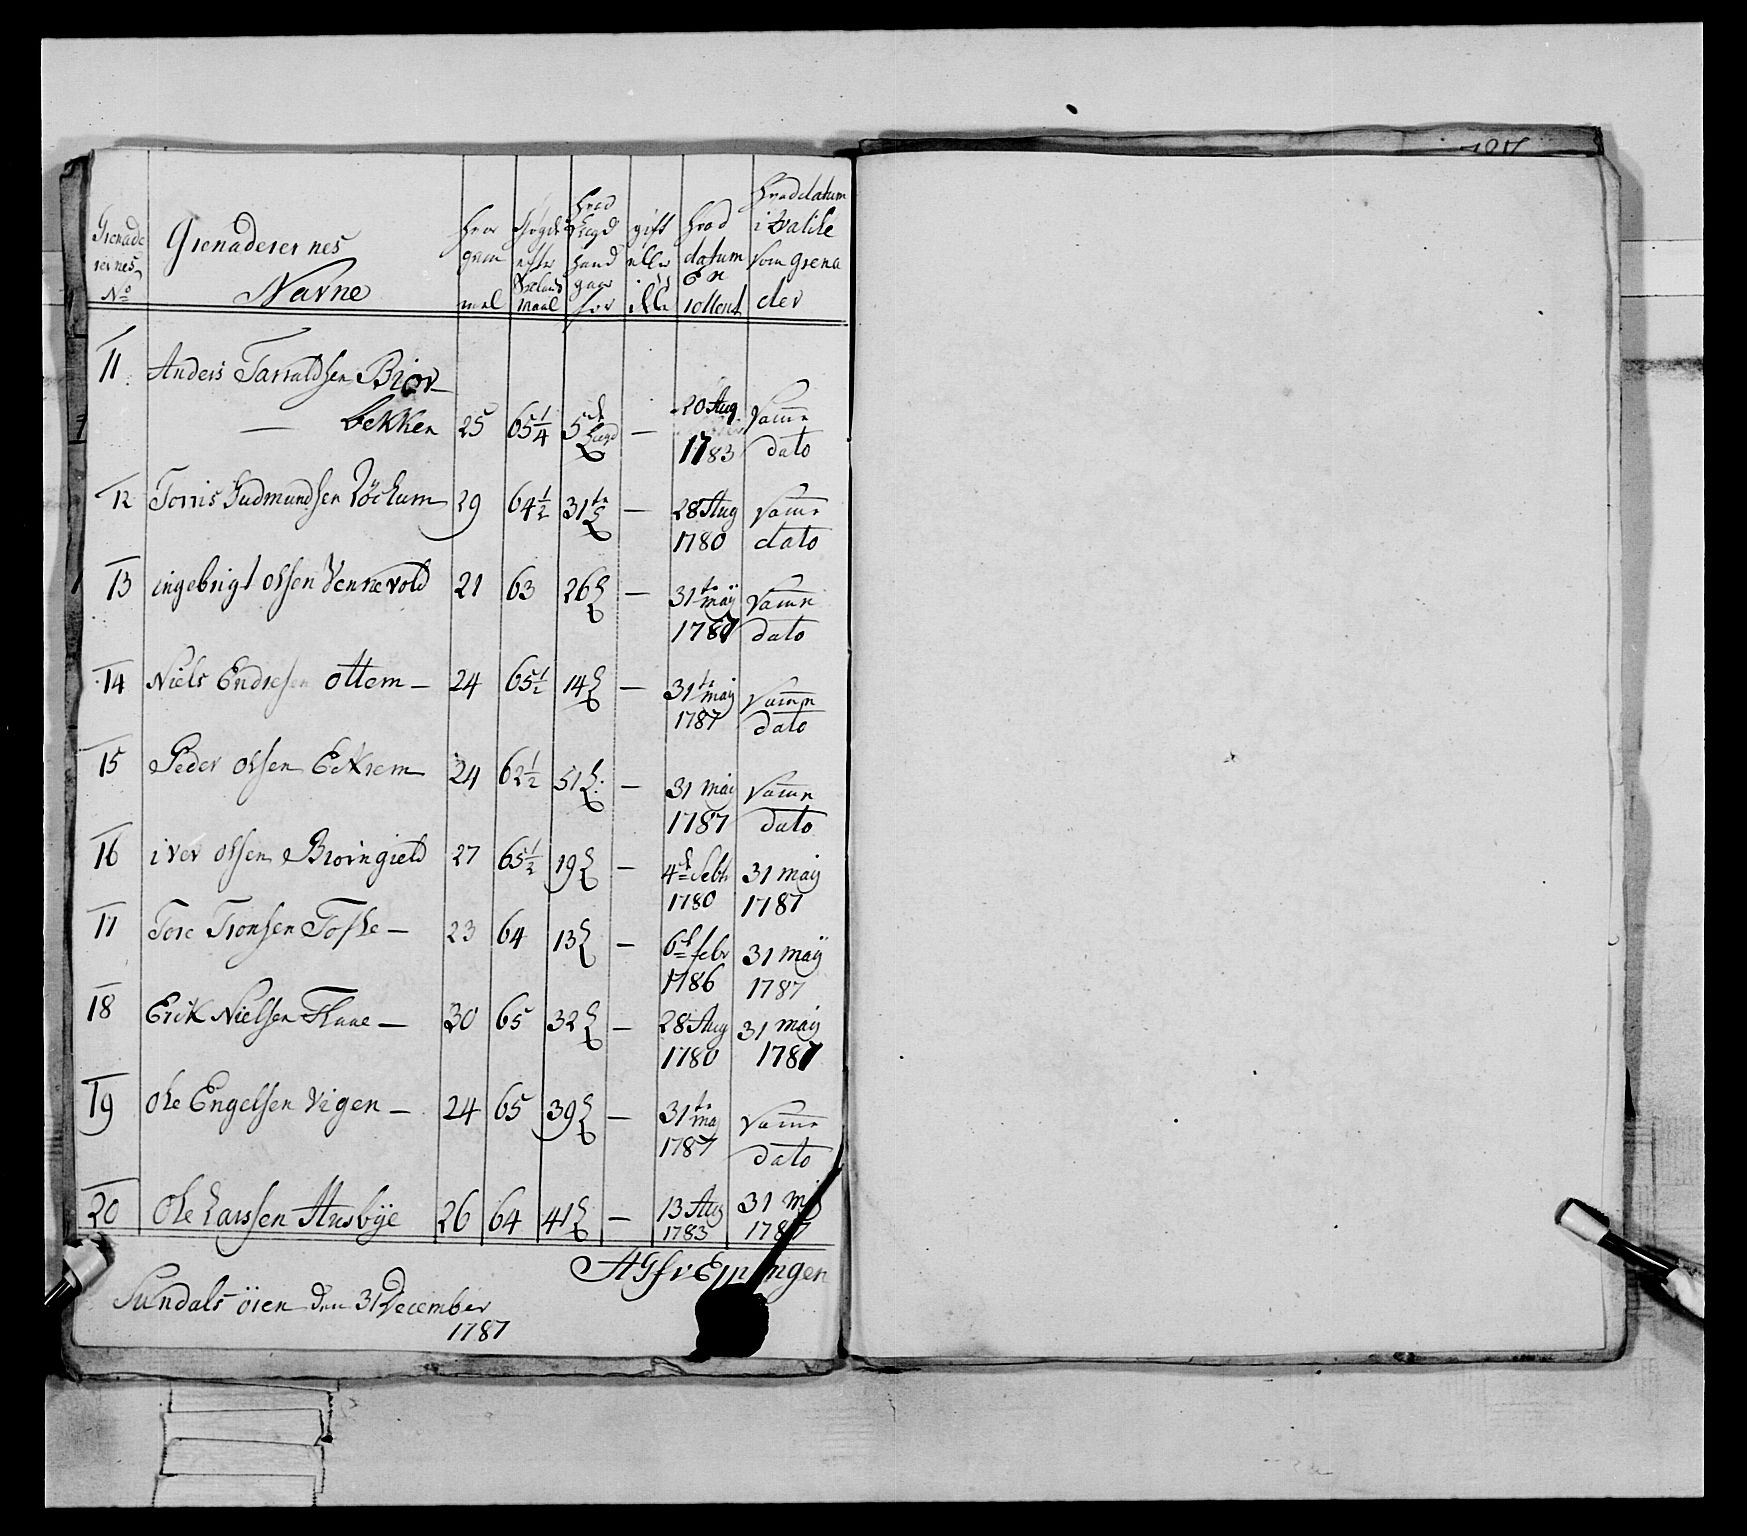 Grenade
rernes
No
Grenaderernes
Navne
hvor
gam
mel
Høyde
efter
Siæland
maal
hvad
Lægd
hand
gaar
for
gift
eller
ikke
hvad
datum
En
rollert
hvad datum
i Balile
som grena
der
11 Anders Tarraldsen Biør
— bekken 25 65 1/4 5de Lægd — 20 Aug 1783 Samme dato
12 Torris Gudmundsen Løckum 29 64 1/2 31te L — 28 Aug 1780 Samme dato
13 ingebrigt olsen Vennevold 21 63 26 L — 31te maÿ 1787 Samme dato
14 Niels Endresen ottem — 24 65 1/2 14 L — 31te maÿ 1787 Samme dato
15 Peder olsen Eckrem 24 62 1/2 51 L — 31 mai 1787 Samme dato
16 iver olsen Biørngield 27 65 1/2 19 L — 4de Sebtr 1780 31 maÿ 1787
17 Tore Tronsen Toske — 23 64 13 L — 6de febr 1786 31 maÿ 1787
18 Erik Nielsen Flaae — 30 65 32 L — 28 Aug 1780 31 maÿ 1787
19 ole Engelsen Vigen — 24 65 39 L — 31te maÿ 1787 Samme dato
20 Ole Larssen Husbÿe 26 64 41 L — 13 Aug 1783 31 maÿ 1787
Sundals ören den 31 December
1787